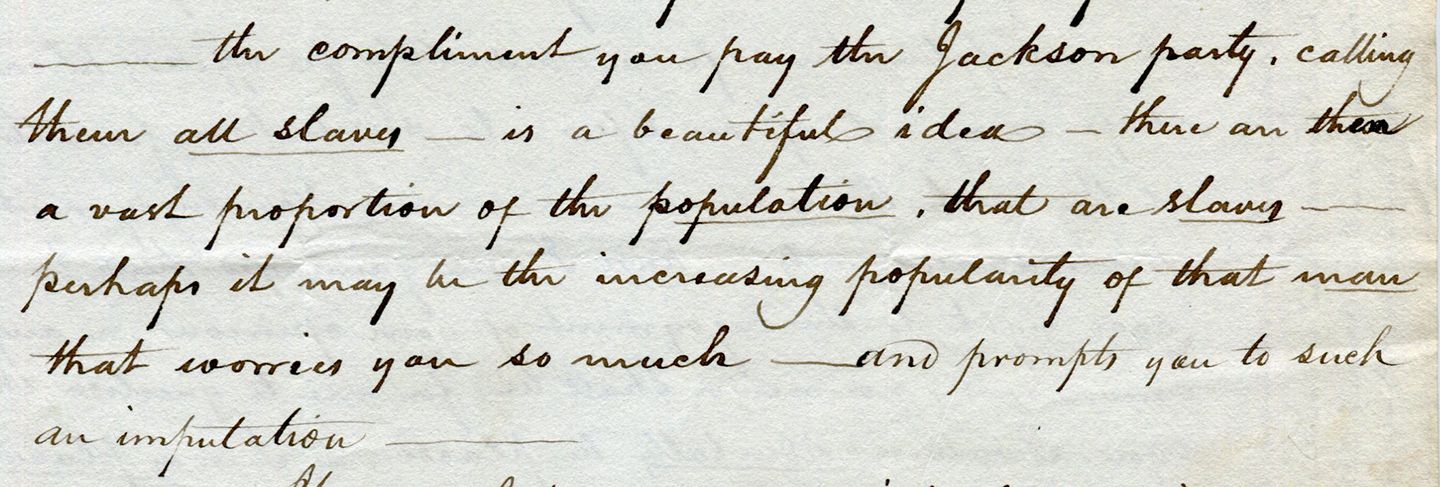 —— the compliment you pay the Jackson party, calling
them all slaves — is a beautiful idea — there are then
a vast proportion of the population, that are slaves ——
perhaps it may be the increasing popularity of that man
that worries you so much —— and prompts you to such
an imputation ——